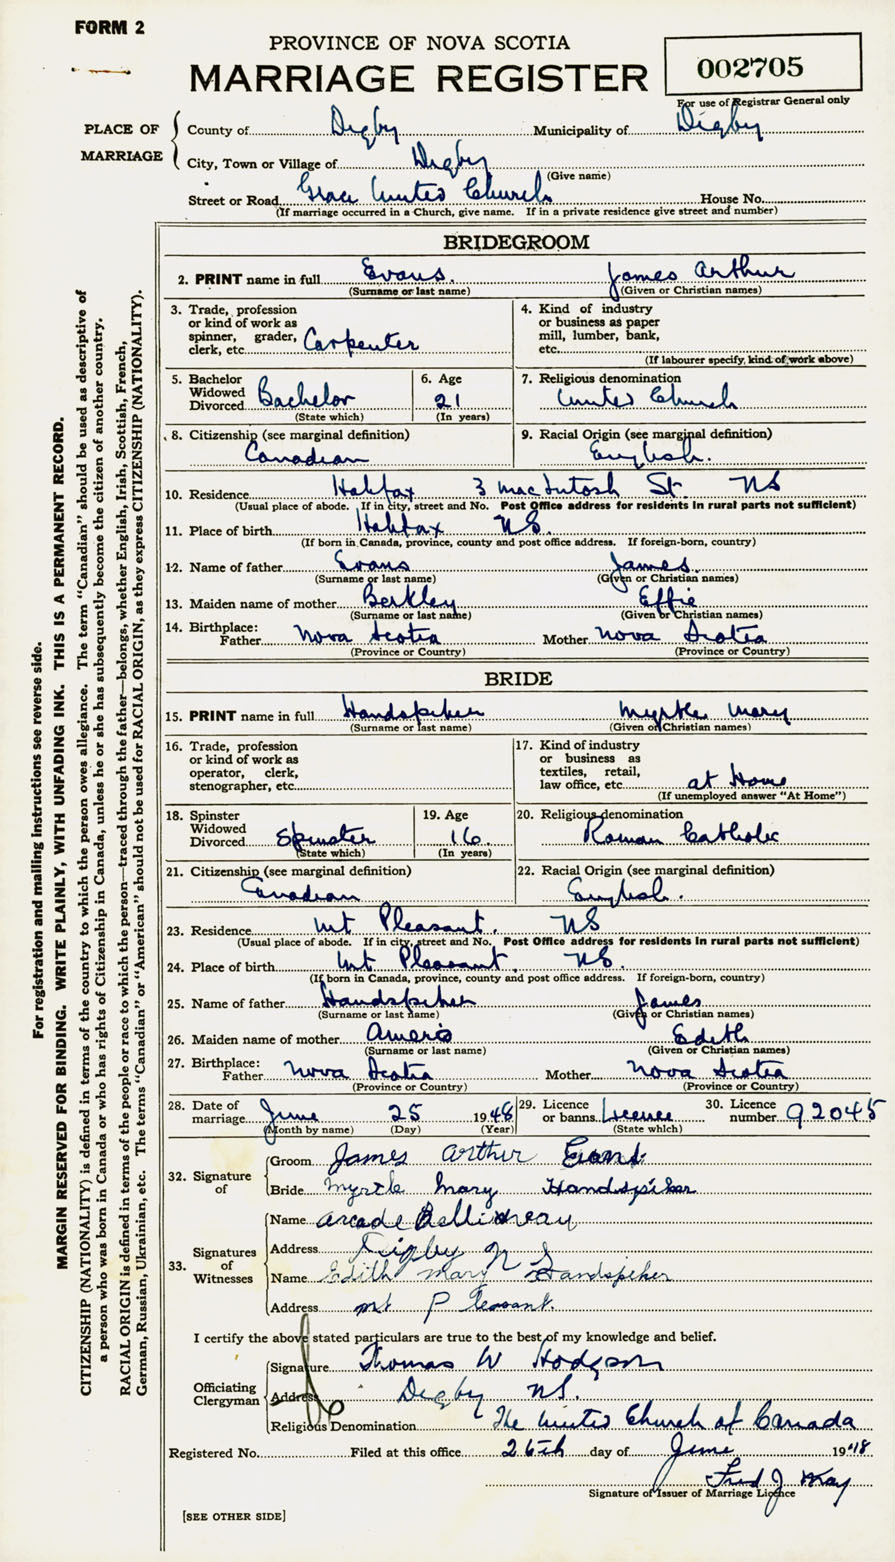 FORM 2
PROVINCE OF NOVA SCOTIA
MARRIAGE REGISTER
002705
For use of Registrar General only
PLACE OF MARRIAGE
County of Digby Municipality of Digby
City, Town or Village of Digby
(Give name)
Street or Road Grace United Church House No.
(If marriage occurred in a Church, give name. If in a private residence give street and number)
BRIDEGROOM
2. PRINT name in full Evans. James Arthur
(Surname or last name) (Given or Christian names)
3. Trade, profession or kind of work as spinner, grader, clerk, etc. Carpenter
4. Kind of industry or business as paper mill, lumber, bank, etc.
(If labourer specify kind of work above)
5. Bachelor Widowed Divorced Bachelor
(State which)
6. Age 21
(In years)
7. Religious denomination United Church
8. Citizenship (see marginal definition) Canadian
9. Racial Origin (see marginal definition) English.
10. Residence Halifax 3 MacIntosh St NS
(Usual place of abode. If in city, street and No. Post Office address for residents in rural parts not sufficient)
11. Place of birth Halifax NS.
(If born in Canada, province, county and post office address. If foreign-born, country)
12. Name of father Evans James.
(Surname or last name) (Given or Christian names)
13. Maiden name of mother Berkley Effie
(Surname or last name) (Given or Christian names)
14. Birthplace: Father Nova Scotia Mother Nova Scotia
(Province or Country) (Province or Country)
BRIDE
15. PRINT name in full Handspiker Myrtle Mary
(Surname or last name) (Given or Christian names)
16. Trade, profession or kind of work as operator, clerk, stenographer, etc.
17. Kind of industry or business as textiles, retail, law office, etc. at Home
(If unemployed answer "At Home")
18. Spinster Widowed Divorced Spinster
(State which)
19. Age 16
(In years)
20. Religious denomination Roman Catholic
21. Citizenship (see marginal definition) Canadian
22. Racial Origin (see marginal definition) English.
23. Residence Mt Pleasant. NS
(Usual place of abode. If in city, street and No. Post Office address for residents in rural parts not sufficient)
24. Place of birth Mt Pleasant. NS.
(If born in Canada, province, county and post office address. If foreign-born, country)
25. Name of father Handspiker James
(Surname or last name) (Given or Christian names)
26. Maiden name of mother Amero Edith
(Surname or last name) (Given or Christian names)
27. Birthplace: Father Nova Scotia Mother Nova Scotia
(Province or Country) (Province or Country)
28. Date of marriage June 25 1948
(Month by name) (Day) (Year)
29. Licence or banns Licence
(State which)
30. Licence number 92045
32. Signature of
Groom James Arthur Evans
Bride Myrtle Mary Handspiker
33. Signatures of Witnesses
Name Arcade Belliveau
Address Digby N S
Name Edith Mary Handspiker
Address Mt Pleasant.
I certify the above stated particulars are true to the best of my knowledge and belief.
Officiating Clergyman
Signature Thomas W Hodgson
Address Digby NS.
Religious Denomination The United Church of Canada
Registered No. Filed at this office 26th day of June 1948
Fred J
Signature of Issuer of Marriage Licence
[SEE OTHER SIDE]
For registration and mailing instructions see reverse side.
MARGIN RESERVED FOR BINDING. WRITE PLAINLY, WITH UNFADING INK. THIS IS A PERMANENT RECORD.
CITIZENSHIP (NATIONALITY) is defined in terms of the country to which the person owes allegiance. The term "Canadian" should be used as descriptive of
a person who was born in Canada or who has rights of Citizenship in Canada, unless he or she has subsequently become the citizen of another country.
RACIAL ORIGIN is defined in terms of the people or race to which the person—traced through the father—belongs, whether English, Irish, Scottish, French,
German, Russian, Ukrainian, etc. The terms "Canadian" or "American" should not be used for RACIAL ORIGIN, as they express CITIZENSHIP (NATIONALITY).